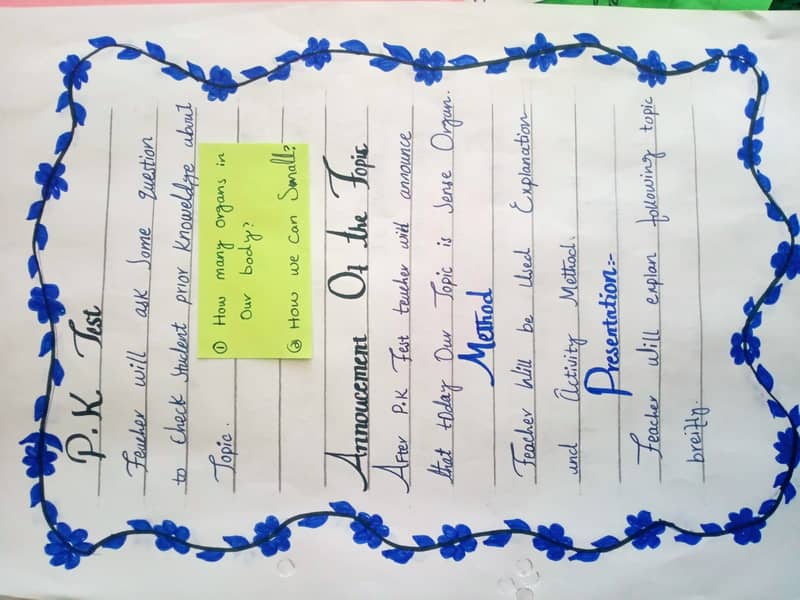 P.K Test
Teacher will ask Some question
to check student prior Knoweldge about
Topic.
① How many organs in
Our body?
② How we can Small?
Annoucement Of the Topic
After P.K Test teacher will announce
that today Our Topic is Sense Organ.
Method
Teacher Will be Used Explanation
and Activity Method.
Presentation:-
Teacher Will explan following topic
breifly.